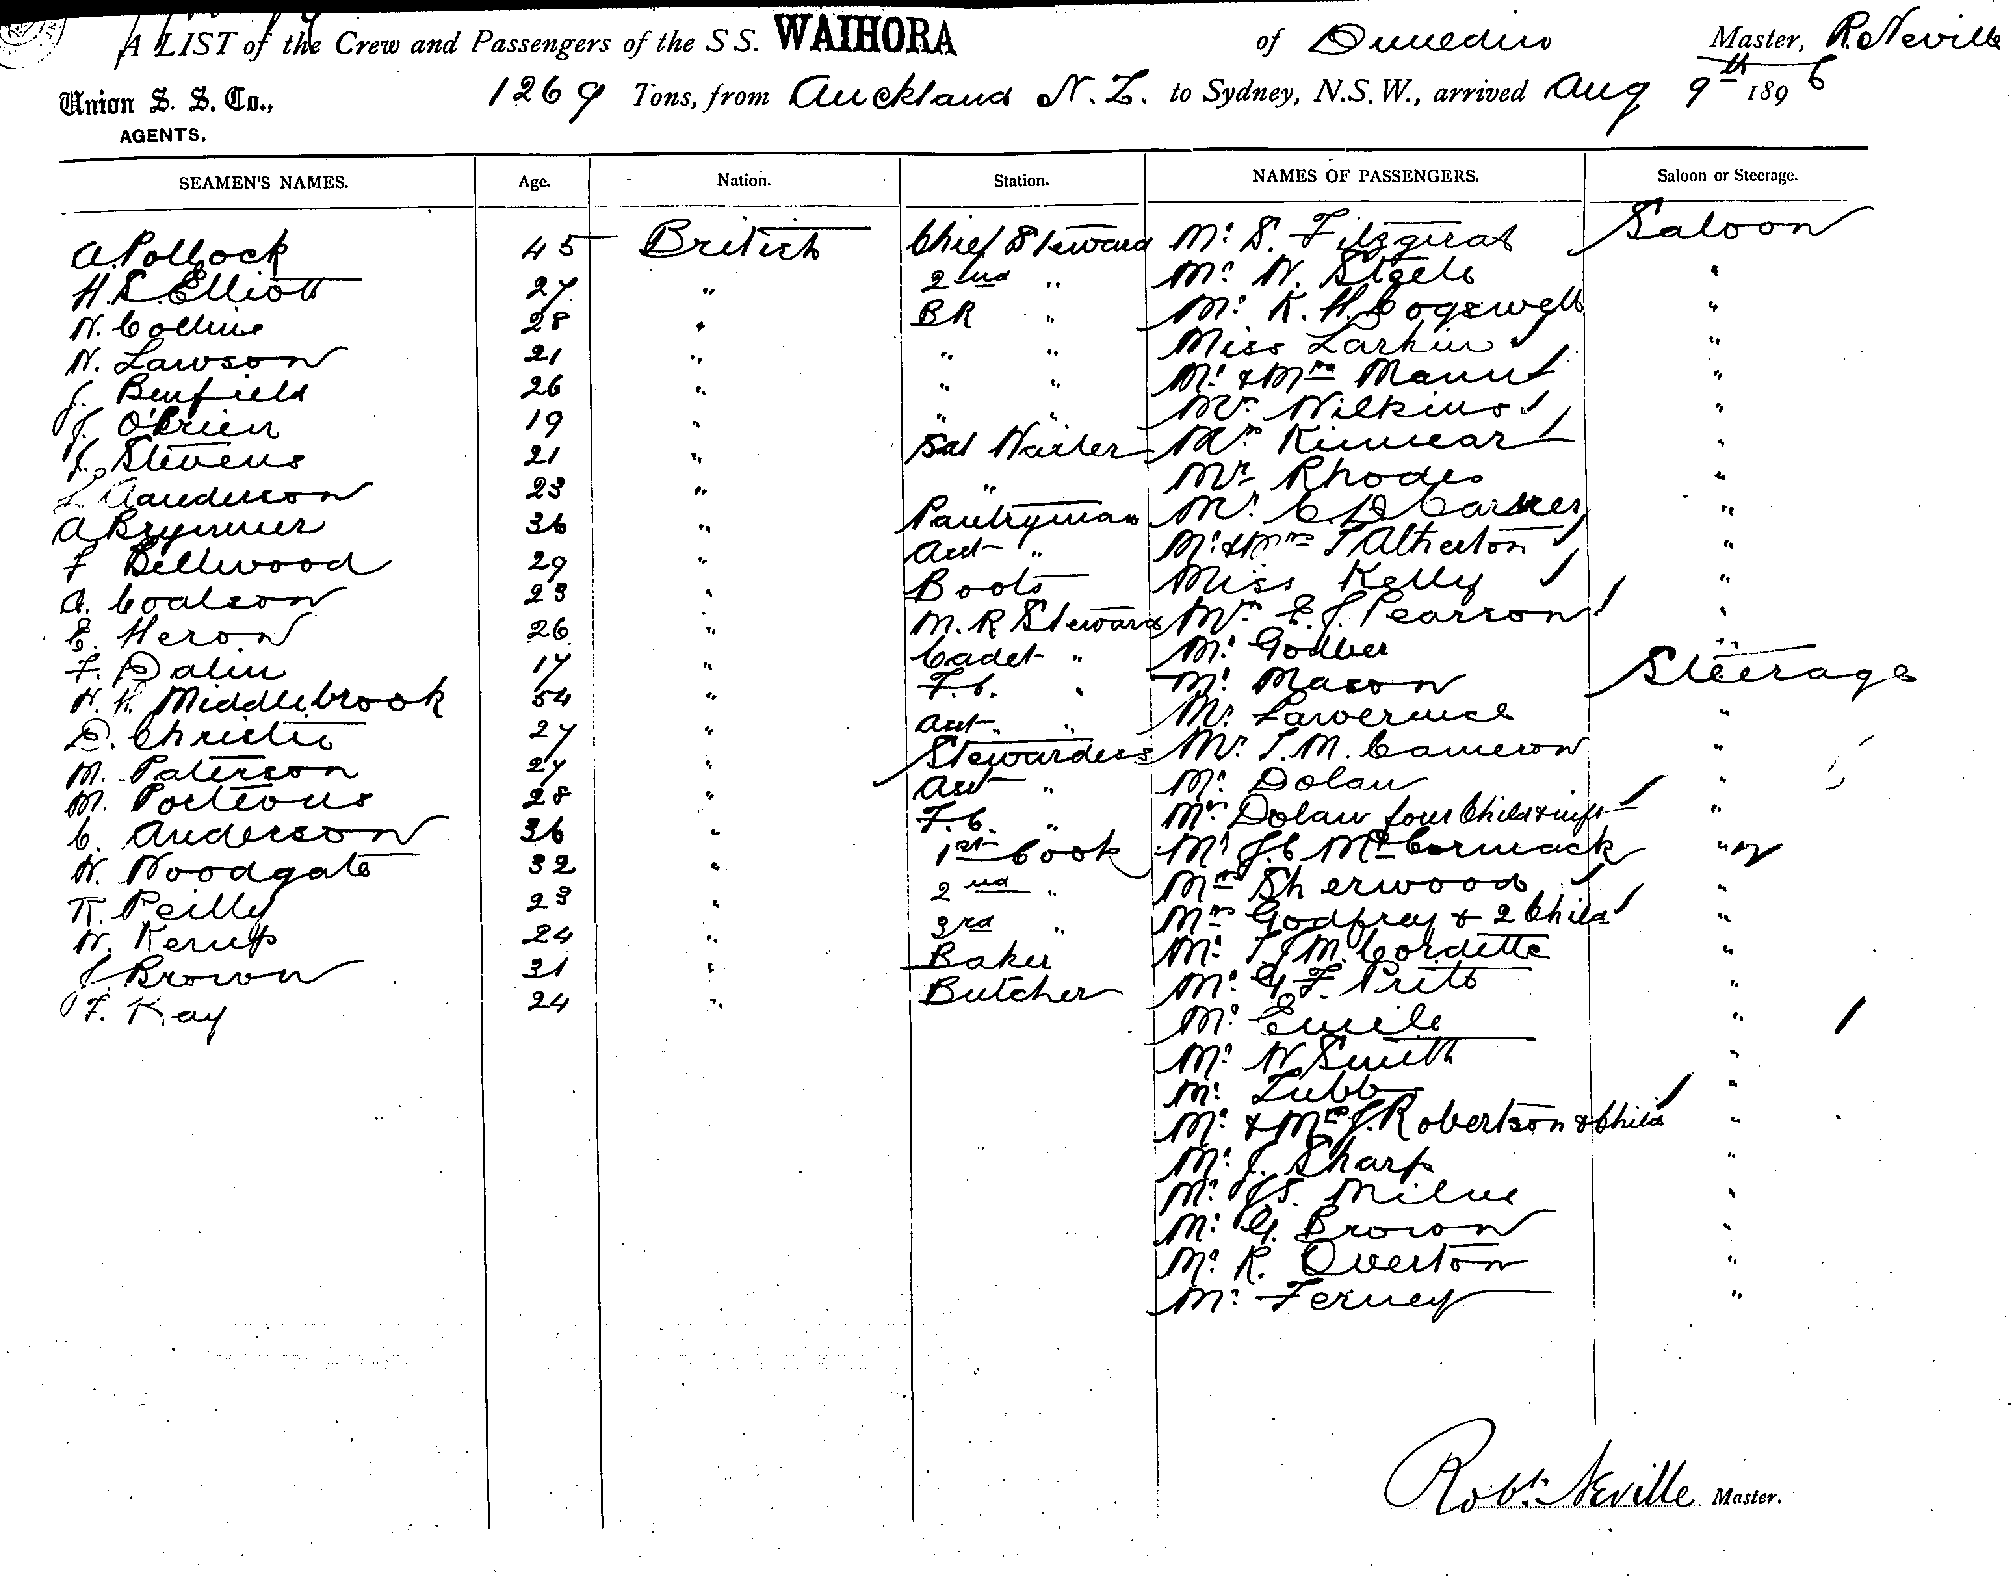 A LIST of the Crew and Passengers of the S S. WAIHORA of Dunedin Master, R. Neville
Union S. S. Co., 1269 Tons, from Auckland N. Z. to Sydney, N.S.W., arrived Aug 9th 1896
AGENTS.
SEAMEN'S NAMES. Age. Nation. Station. NAMES OF PASSENGERS. Saloon or Steerage.
A. Pollock 45 British Chief Steward Mr S. Fitzgerald Saloon
H. S. Elliott 27 " 2nd " Mr W. Steele "
W. Collins 28 " BR " Mr K. H. Cogswell "
W. Lawson 21 " " " Miss Larkin "
J. Benfield 26 " " " Mr & Mrs Mann "
J. O'Brien 19 " " " Mrs Wilkins "
J. Stevens 21 " Sal Waiter Mrs Kinnear "
L. 23 " " Mrs Rhodes "
A 36 " Pantryman Mr C D "
F Bellwood 29 " Asst " Mr & Mrs T Atherton "
A. Coalson 23 " Boots Miss Kelly "
E. Heron 26 " M. R Steward Mrs E. J. Pearson "
F. Dalin 17 " Cadet " Mr Godber "
H. H. Middlebrook 54 " F.C. " Mr Mason Steerage
D. Christie 27 " Asst " " Mr Lawerence "
M. Paterson 27 " Stewardess Mr T. M. Cameron "
M. Porteous 28 " Asst " Mr Dolan "
C. Anderson 36 " F.C. " Mrs Dolan four Child & inft "
W. Woodgate 32 " 1st Cook Mr J. C McCormack "
K. Reilly 23 " 2nd " Mrs Sherwood "
W. 24 " 3rd " Mrs Godfrey & 2 Child "
J. Brown 31 " Baker Mr T. J M. Cordette "
F. Kay 24 " Butcher Mr G. F. "
Mr Emile "
Mr W Smith "
Mr Tubb "
Mr & Mrs J. Robertson & Child "
Mr J. Sharp "
Mr J S. Milne "
Mr G. Brown "
Mr R. Overton "
Mr Ferney "
Robt. Neville Master.